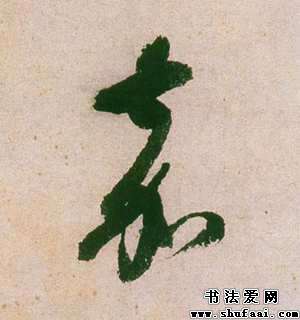 嘉
书法爱网
www.shufaai.com